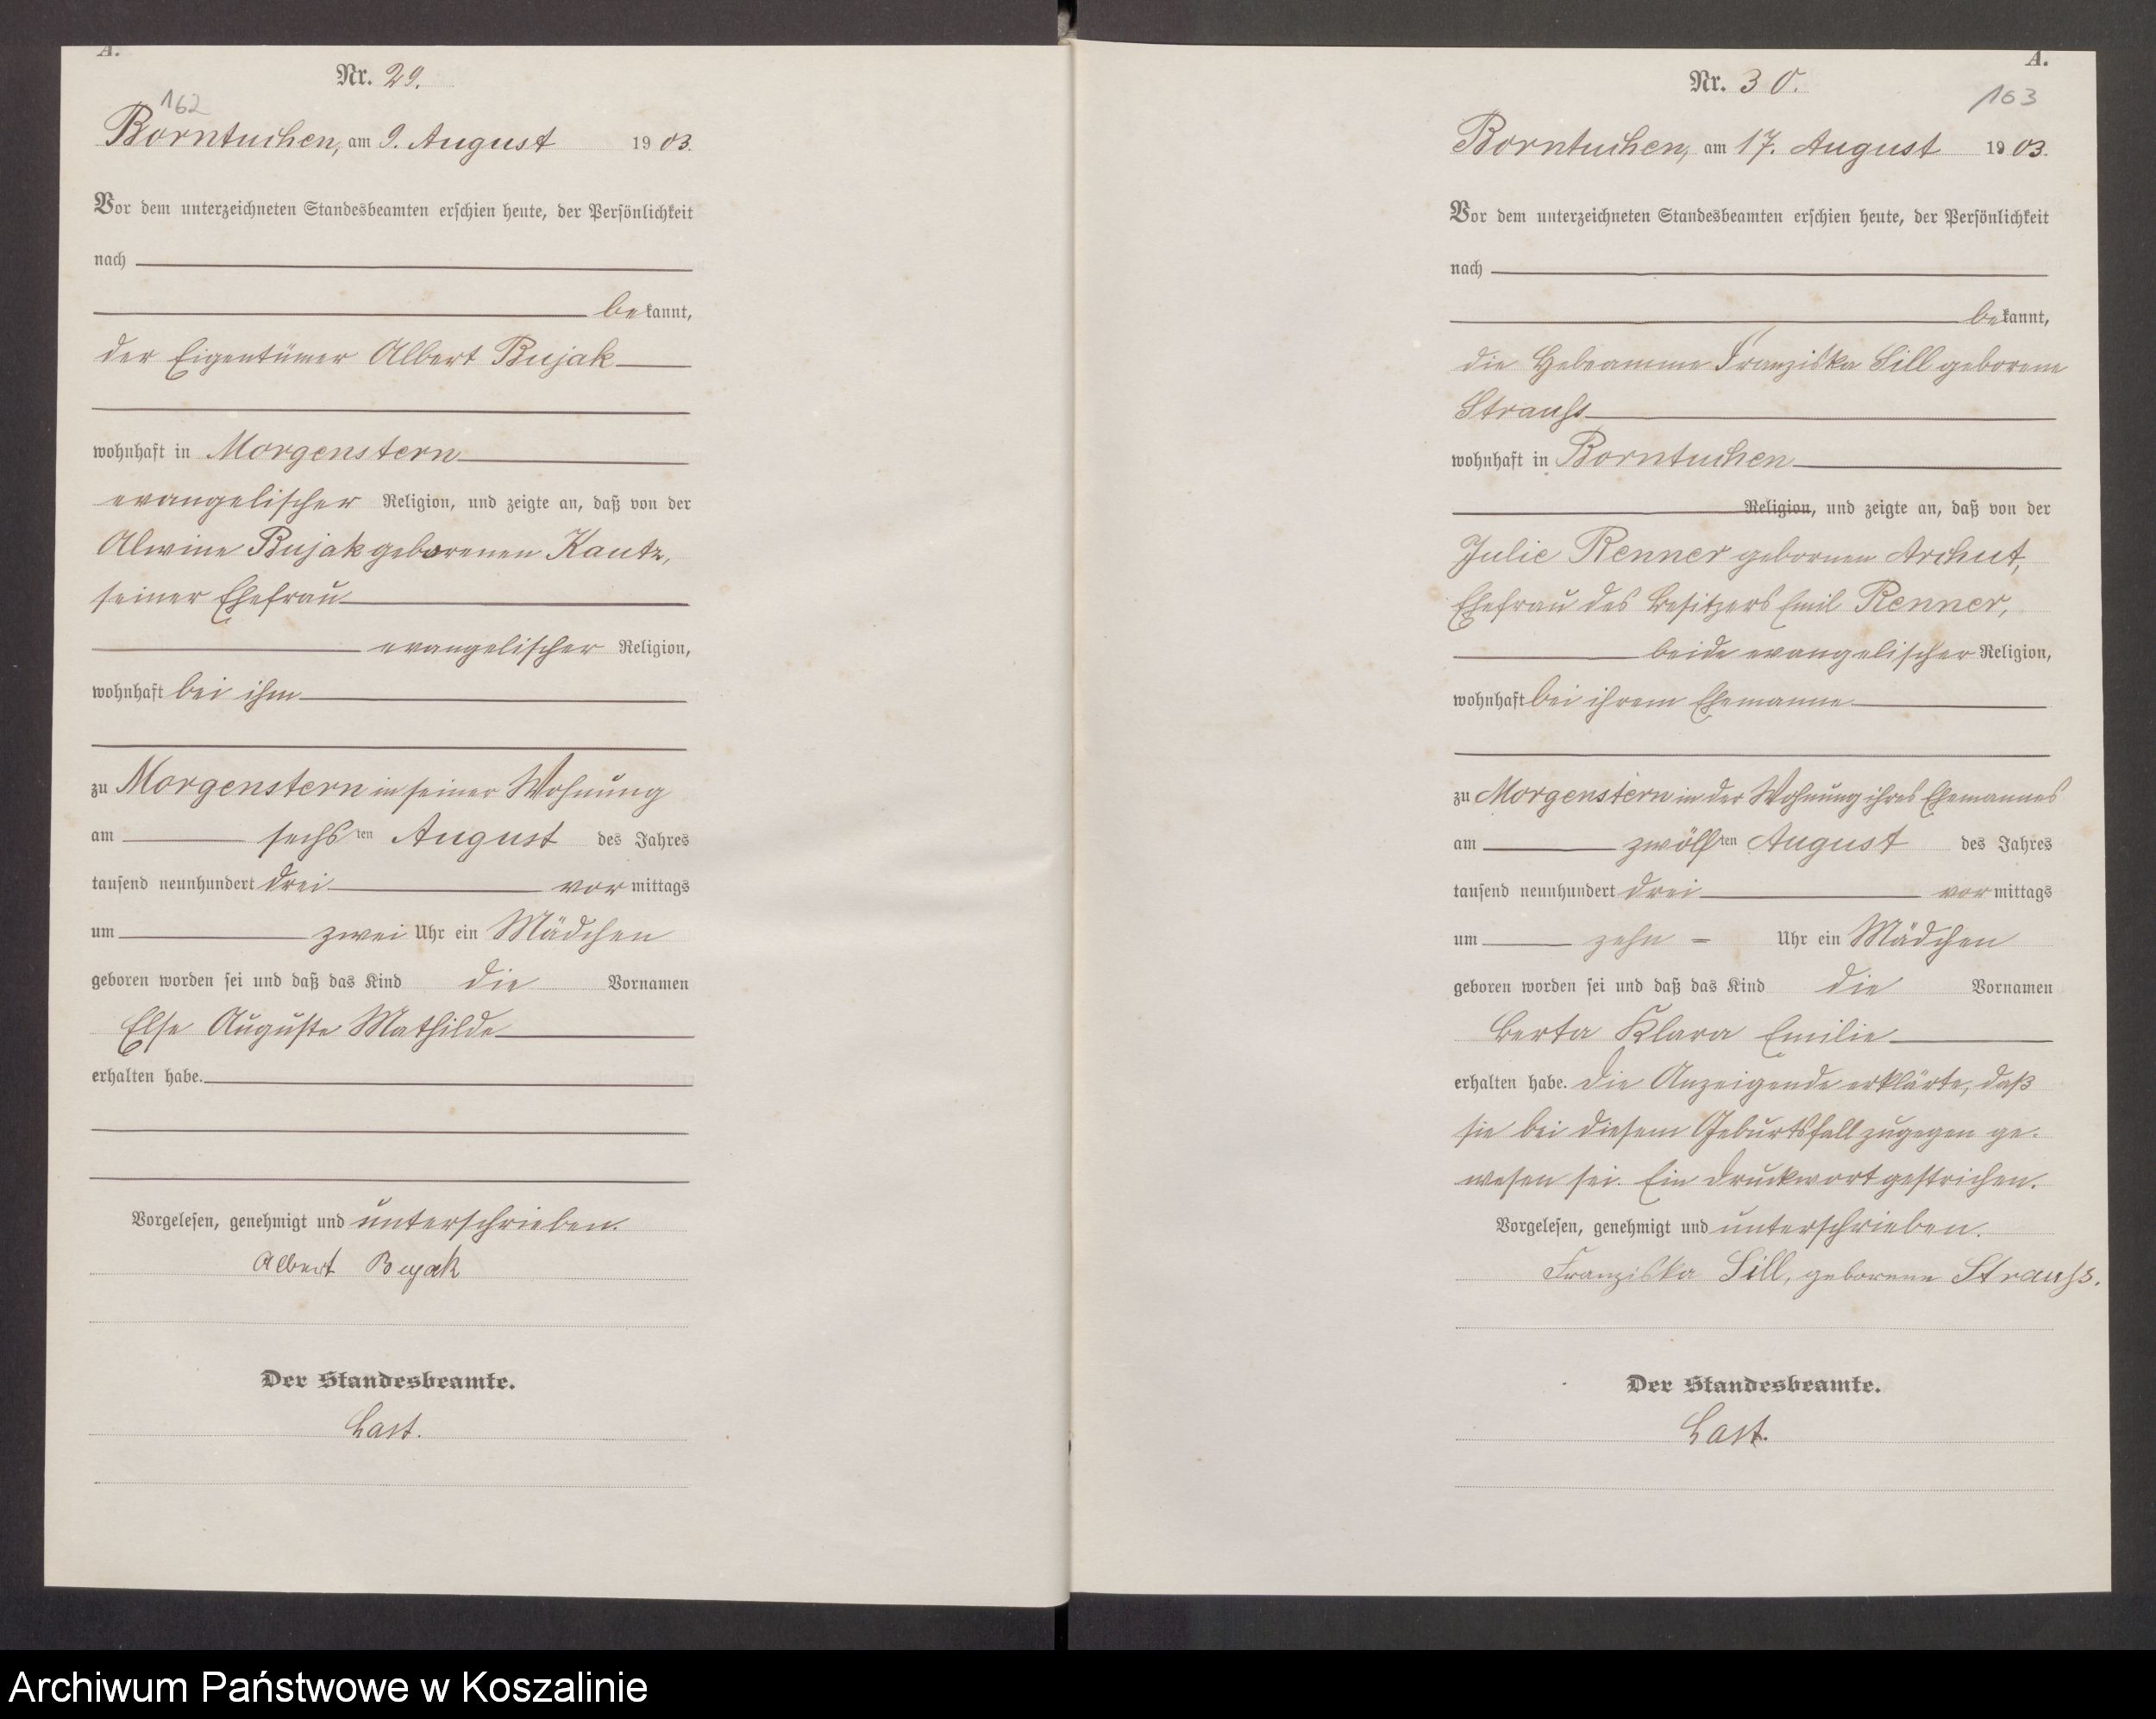 A.
Nr. 29.
162
Borntuchen, am 9. August 1903.
Vor dem unterzeichneten Standesbeamten erschien heute, der Persönlichkeit
nach
bekannt,
der Eigentümer Albert Bujak
wohnhaft in Morgenstern
evangelischer Religion, und zeigte an, daß von der
Alwine Bujak geborenen Kautz,
seiner Ehefrau
evangelischer Religion,
wohnhaft bei ihm
zu Morgenstern in seiner Wohnung
am sechsten August des Jahres
tausend neunhundert drei vormittags
um zwei Uhr ein Mädchen
geboren worden sei und daß das Kind die Vornamen
Else Auguste Mathilde
erhalten habe.
Vorgelesen, genehmigt und unterschrieben.
Albert Bujak
Der Standesbeamte.
Last.
A.
Nr. 30.
163
Borntuchen, am 17. August 1903.
Vor dem unterzeichneten Standesbeamten erschien heute, der Persönlichkeit
nach
bekannt,
die Hebeamme Franziska Sill geborene
Strauss
wohnhaft in Borntuchen
Religion, und zeigte an, daß von der
Julie Renner gebornen Archut,
Ehefrau des Besitzers Emil Renner,
beide evangelischer Religion,
wohnhaft bei ihrem Ehemanne
zu Morgenstern in der Wohnung ihres Ehemannes
am zwölften August des Jahres
tausend neunhundert drei vormittags
um zehn = Uhr ein Mädchen
geboren worden sei und daß das Kind die Vornamen
Berta Klara Emilie
erhalten habe. Die Anzeigende erklärte, daß
sie bei diesem Geburtsfall zugegen ge-
wesen sei. Ein Druckwort gestrichen.
Vorgelesen, genehmigt und unterschrieben.
Franziska Sill, geborene Strauss.
Der Standesbeamte.
Last.
Archiwum Państwowe w Koszalinie